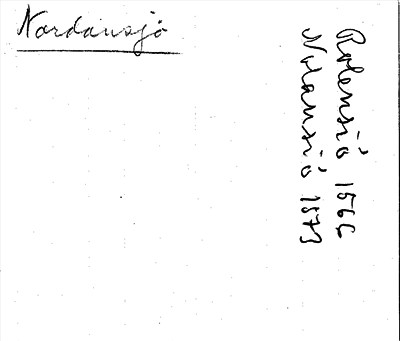 Nordansjö
Rolensiö 1566
Nolansiö 1573